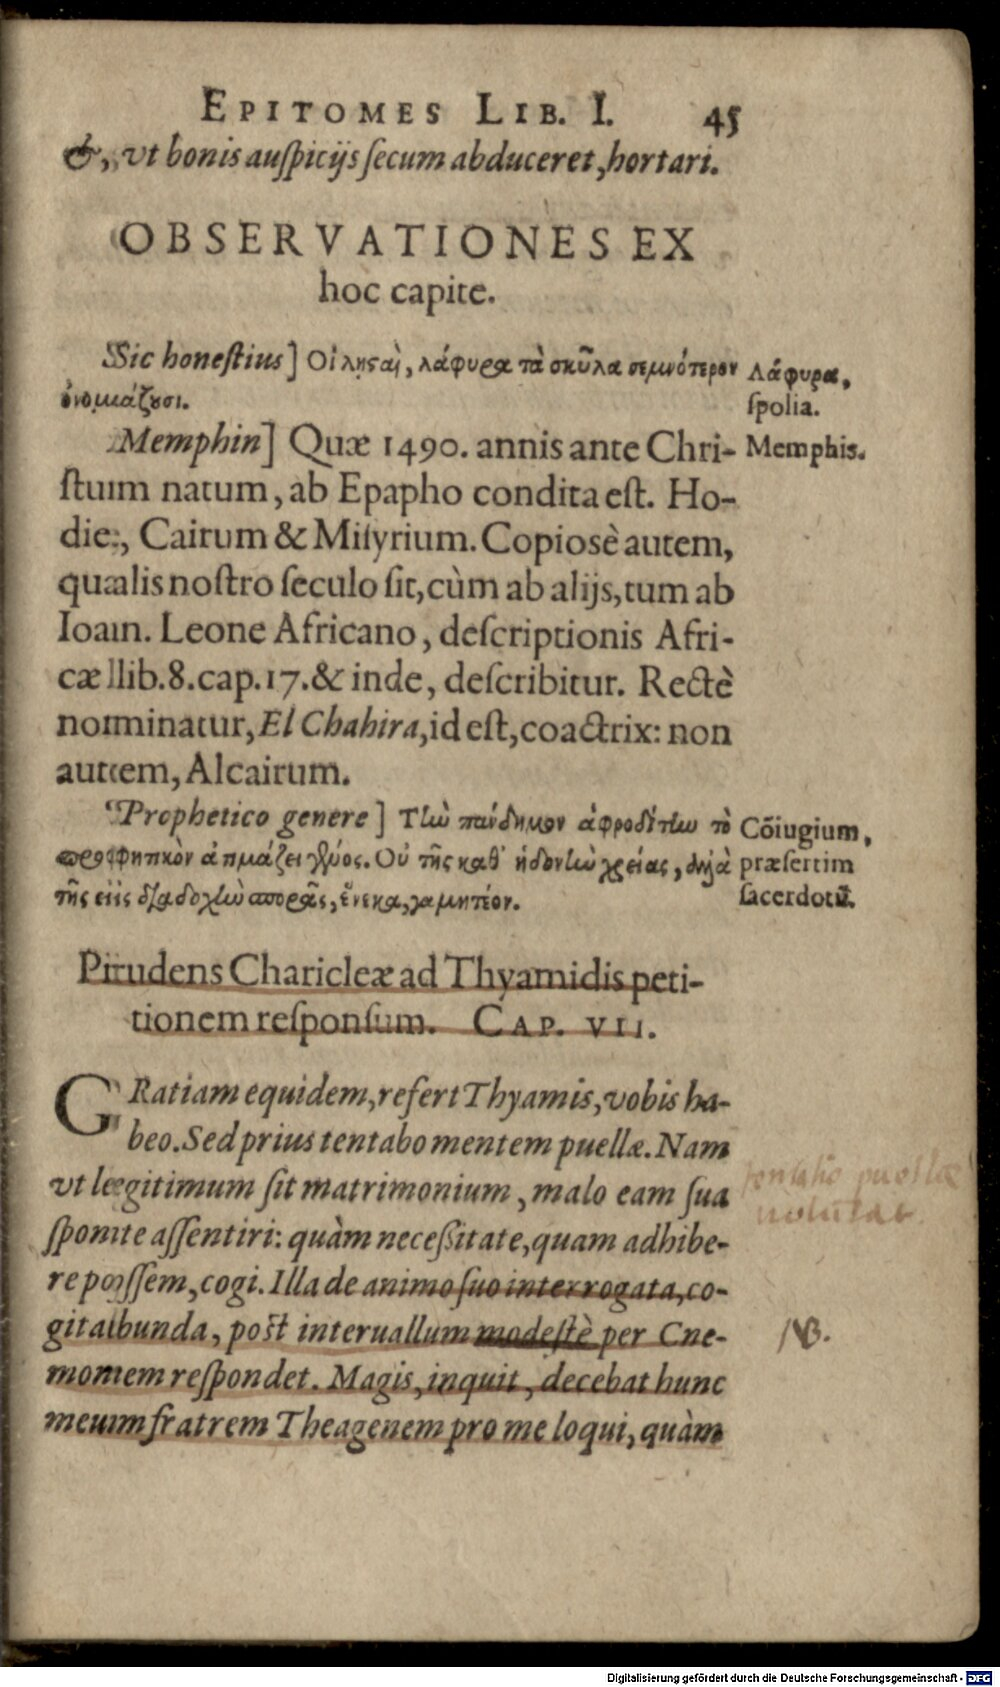 EPITOMES LIB. I. 45
&, vt bonis auſpicijs ſecum abduceret, hortari.
OBSERVATIONES EX
hoc capite.
Sic honeſtius] Οἱ λῃςαὶ, λάφυρα τὰ σκῦλα σεμνότερον
ὀνομάζουσι.
Λάφυρα,
ſpolia.
Memphin] Quæ 1490. annis ante Chri-
Memphis.
ſtum natum, ab Epapho condita eſt. Ho-
die, Cairum & Miſyrium. Copiosè autem,
qualis noſtro ſeculo ſit, cùm ab alijs, tum ab
Ioan. Leone Africano, deſcriptionis Afri-
cæ lib. 8. cap. 17. & inde, deſcribitur. Rectè
nominatur, El Chahira, id eſt, coactrix: non
autem, Alcairum.
Prophetico genere] Τὴν πάνδημον ἀφροδίτην τὸ
προφητικὸν ἀτιμάζει γένος. Οὐ τῆς καθ' ἡδονὴν χρείας, ἀλλὰ
τῆς εἰς διαδοχὴν σπορᾶς, ἕνεκα, γαμητέον.
Cōiugium,
præſertim
ſacerdotũ.
Prudens Charicleæ ad Thyamidis peti-
tionem reſponſum. CAP. VII.
GRatiam equidem, refert Thyamis, vobis ha-
beo. Sed prius tentabo mentem puellæ. Nam
vt legitimum ſit matrimonium, malo eam ſua
ſponte aſſentiri: quàm neceßitate, quam adhibe-
re poſſem, cogi. Illa de animo ſuo interrogata, co-
gitabunda, poſt interuallum modeſtè per Cne-
monem reſpondet. Magis, inquit, decebat hunc
meum fratrem Theagenem pro me loqui, quàm
puellæ
NB.
Digitalisierung gefördert durch die Deutsche Forschungsgemeinschaft - DFG